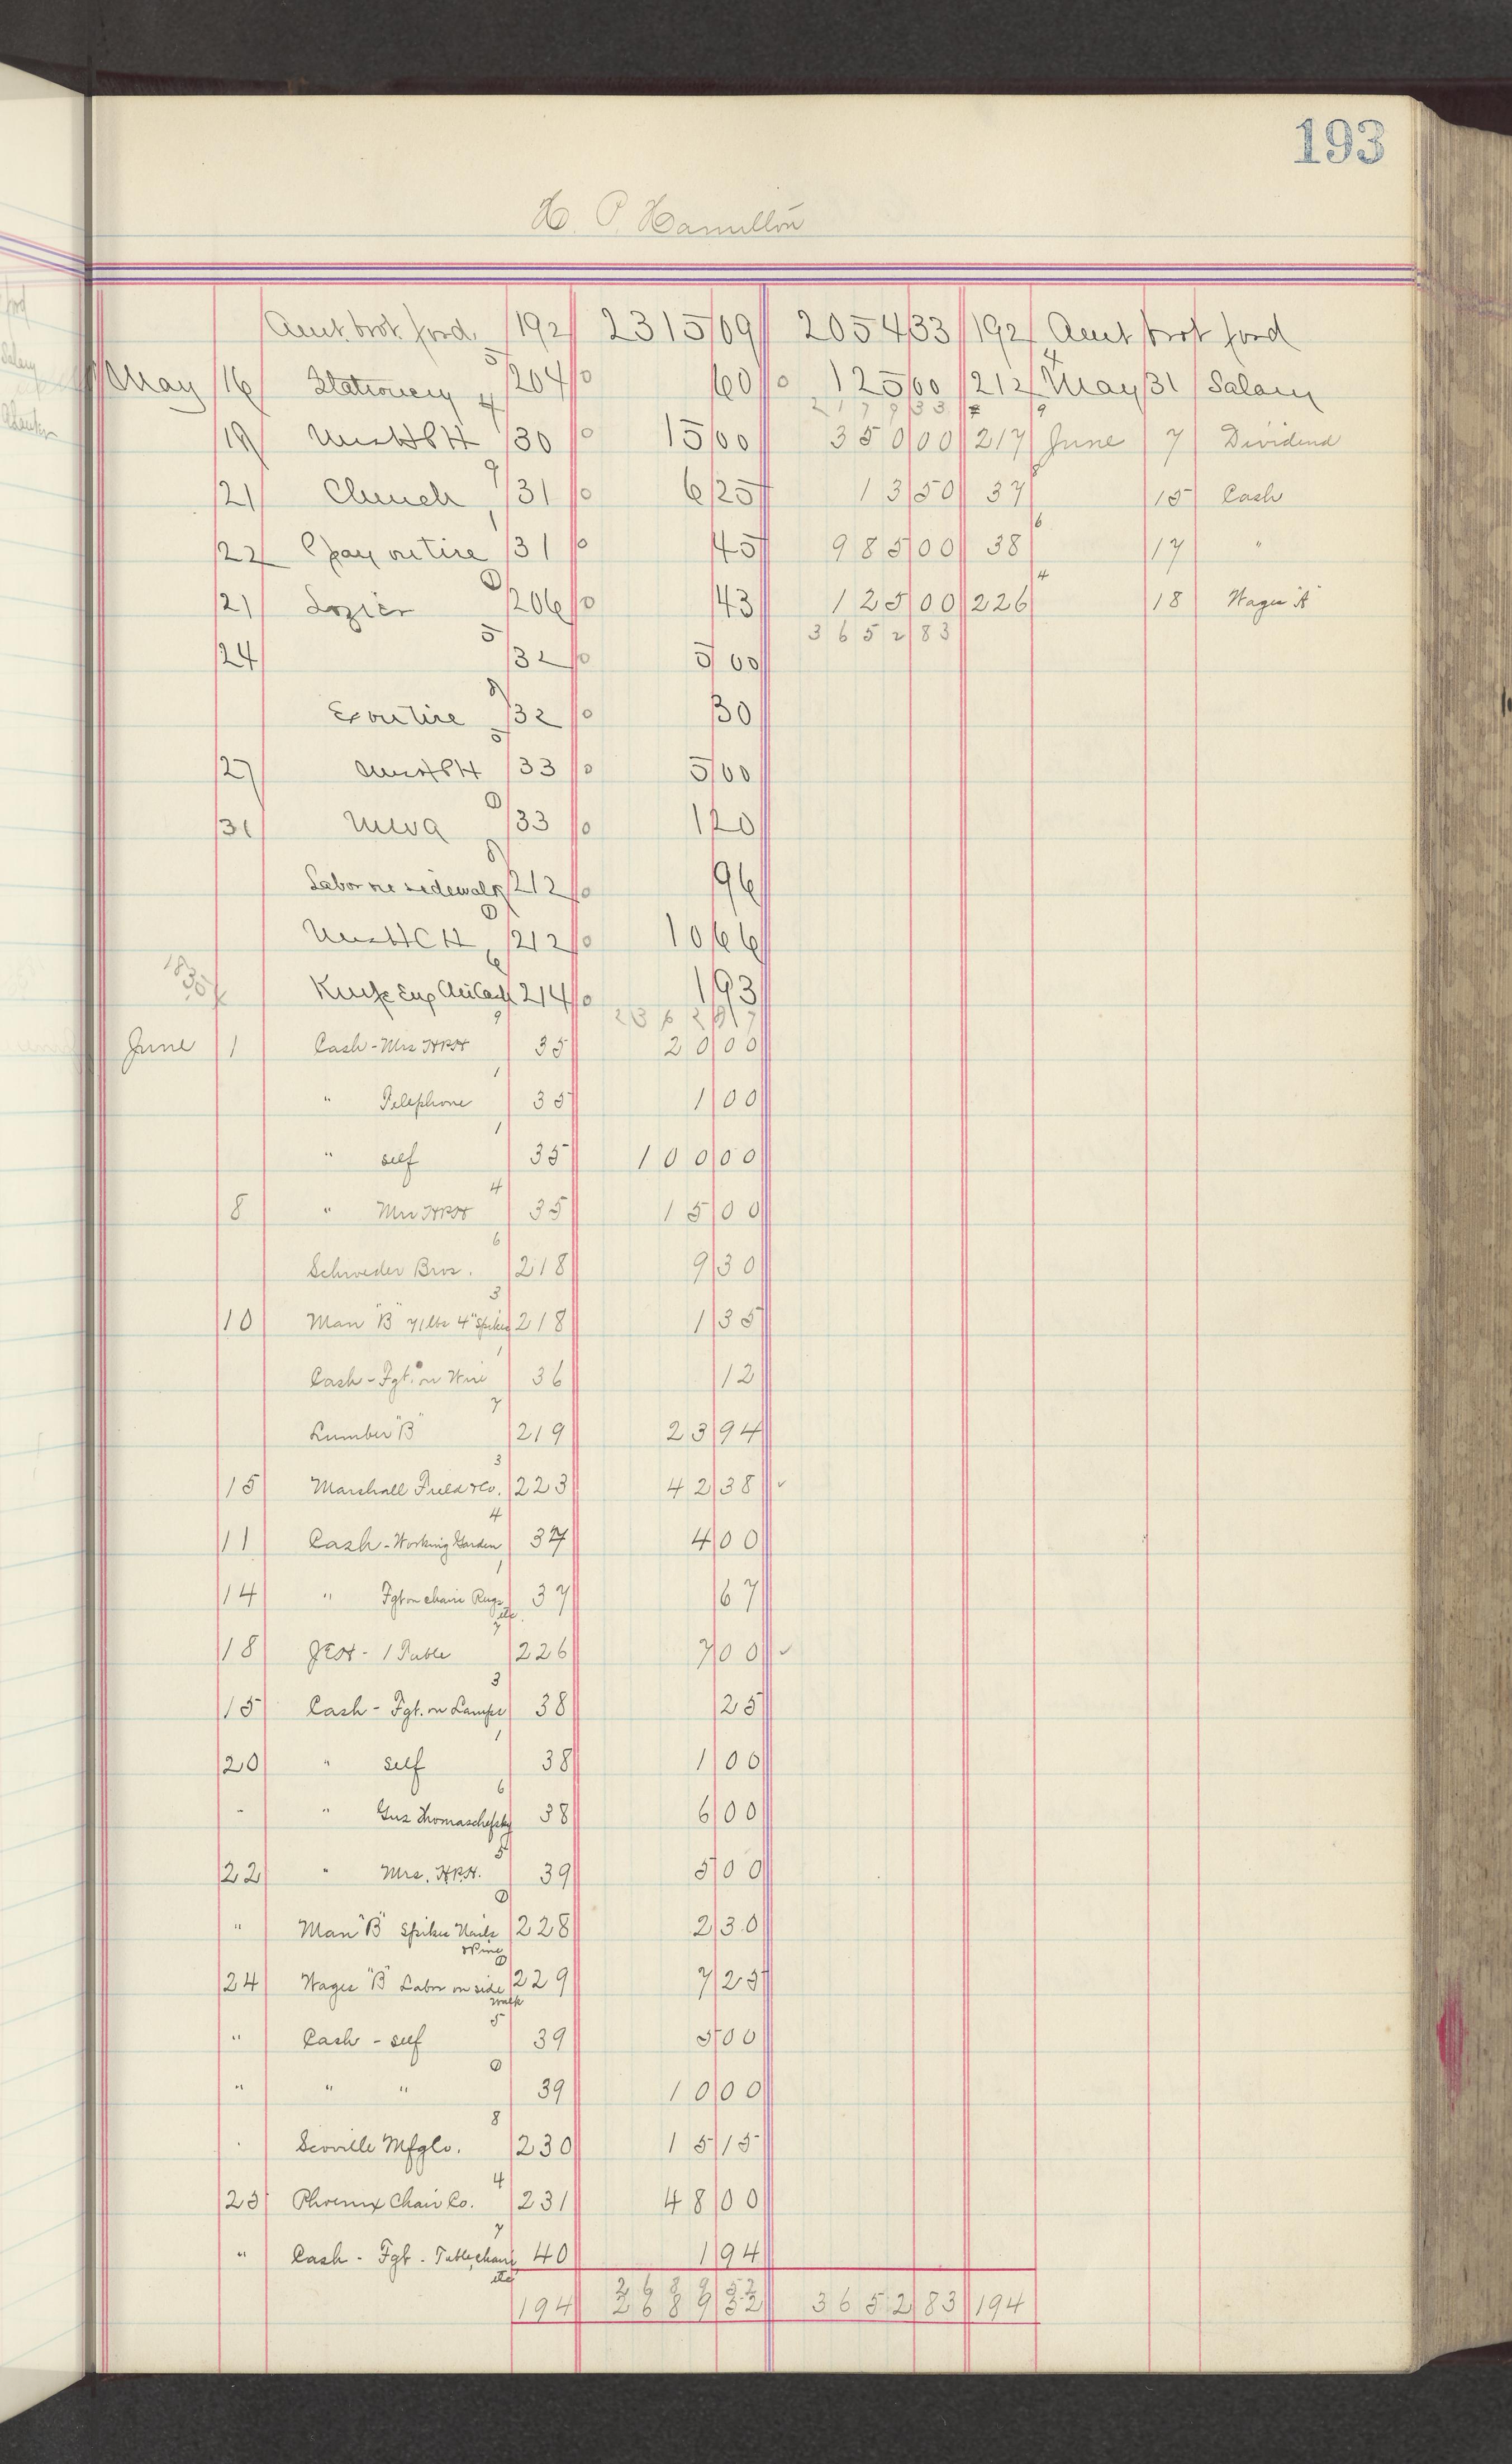 193
H. P. Hamilton
Amt. brot. ford. 192 2315 09 2054 33 192 Amt brot ford
5 4
May 16 Stationery 204 0 60 0 125 00 212 May 31 Salary
4 2179 33 9
19 Mrs HPH 30 0 15 00 350 00 217 June 7 Dividend
9 8
21 Church 31 0 6 25 13 50 37 15 Cash
1 6
22 Ex on tire 31 0 45 985 00 38 17 "
1 4
21 Lozier 206 0 43 125 00 226 18 Wages "A"
5 3652 83
24 32 0 5 00
8
Ex on tire 32 0 30
5
27 Mrs HPH 33 0 5 00
1
31 33 0 1 20
8
Labor on sidewalk 212 0 96
1
Mrs HCH 212 0 10 66
6
214 0 1 93
9 2362 87
June 1 Cash - Mrs HPH 35 20 00
1
" Telephone 35 1 00
1
" self 35 100 00
4
8 " Mrs HPH 35 15 00
6
Schroeder Bros. 218 9 30
3
10 Man "B" 71 lbs 4" Spikes 218 1 35
1
Cash - Fgt. on Wire 36 12
7
Lumber "B" 219 23 94
3
15 Marshall Field & Co. 223 42 38 ✓
4
11 Cash - Working Garden 37 4 00
1
14 " Fgt on chair Rugs etc. 37 67
7
18 JEH - 1 Table 226 7 00 ✓
3
15 Cash - Fgt. on Lamps 38 25
1
20 " self 38 1 00
6
" " Gus Thomaschefsky 38 6 00
5
22 " Mrs. H.P.H. 39 5 00
1
" Man "B" Spikes Nails & Pine 228 2 30
1
24 Wages "B" Labor on side walk 229 7 25
5
" Cash - self 39 5 00
1
" " " 39 10 00
8
Scoville Mfg Co. 230 15 15
4
25 Phoenix Chair Co. 231 48 00
7
" Cash - Fgt - Table, chairs etc 40 1 94
2689 52
194 2689 52 3652 83 194